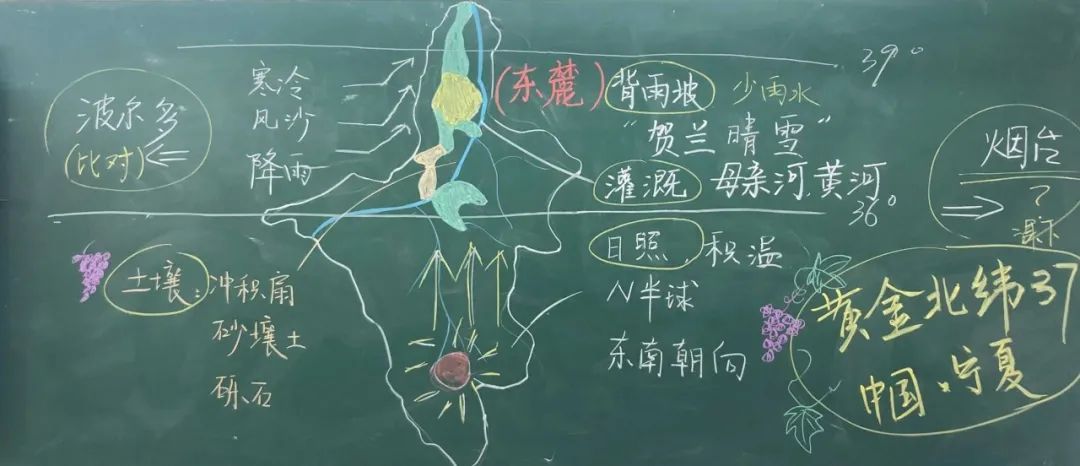 39°
波尔多
(比对)
寒冷
风沙
降雨
(东麓)
背雨坡
少雨水
"贺兰晴雪"
灌溉
母亲河.黄河
36°
烟台
土壤:
冲积扇
砂壤土
砾石
日照.积温
N半球
东南朝向
黄金北纬37
中国·宁夏